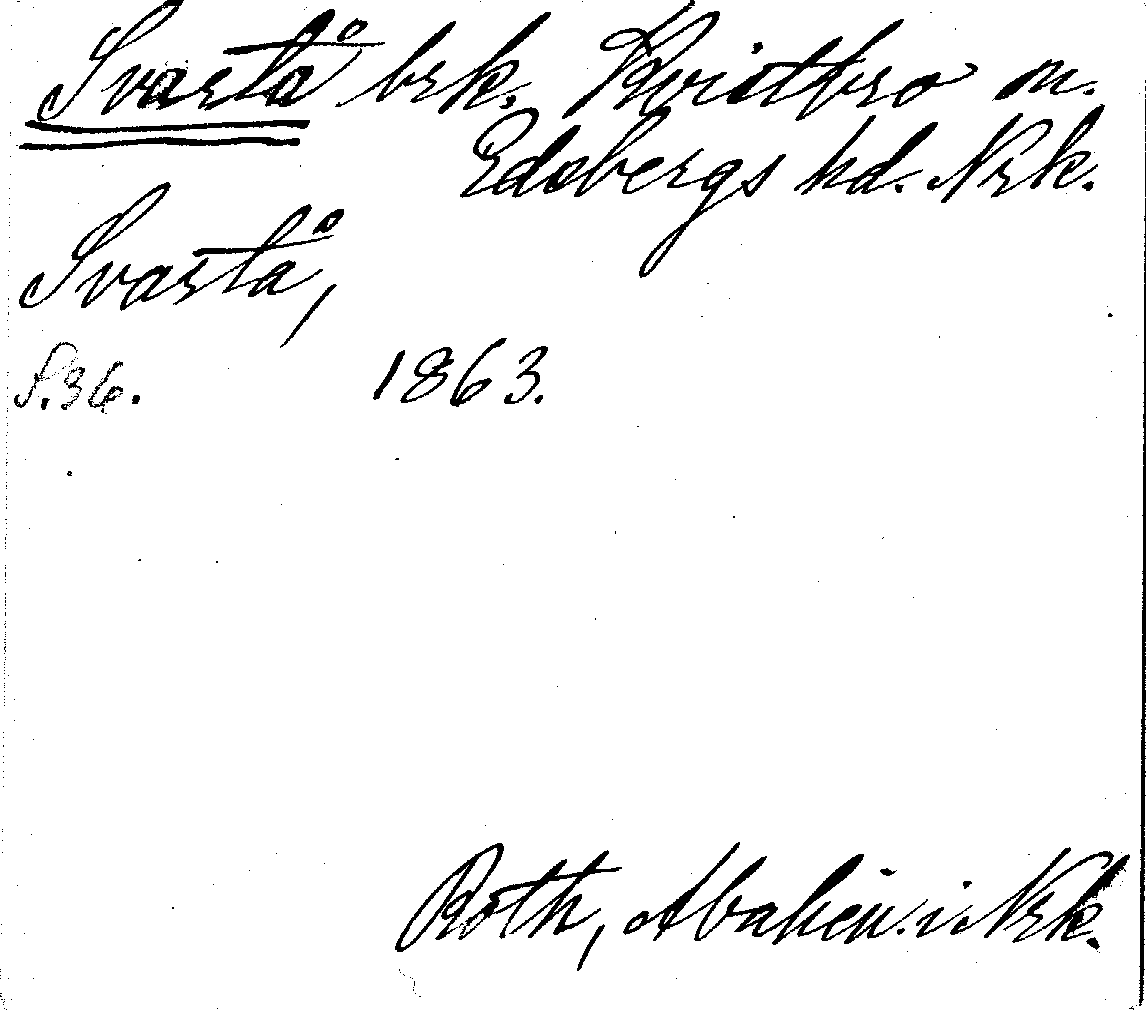 Svartå brk. Kvistbro sn.
Edsbergs hd. Nrk.
Svartå,
S. 36. 1863.
Roth, i Nrk.